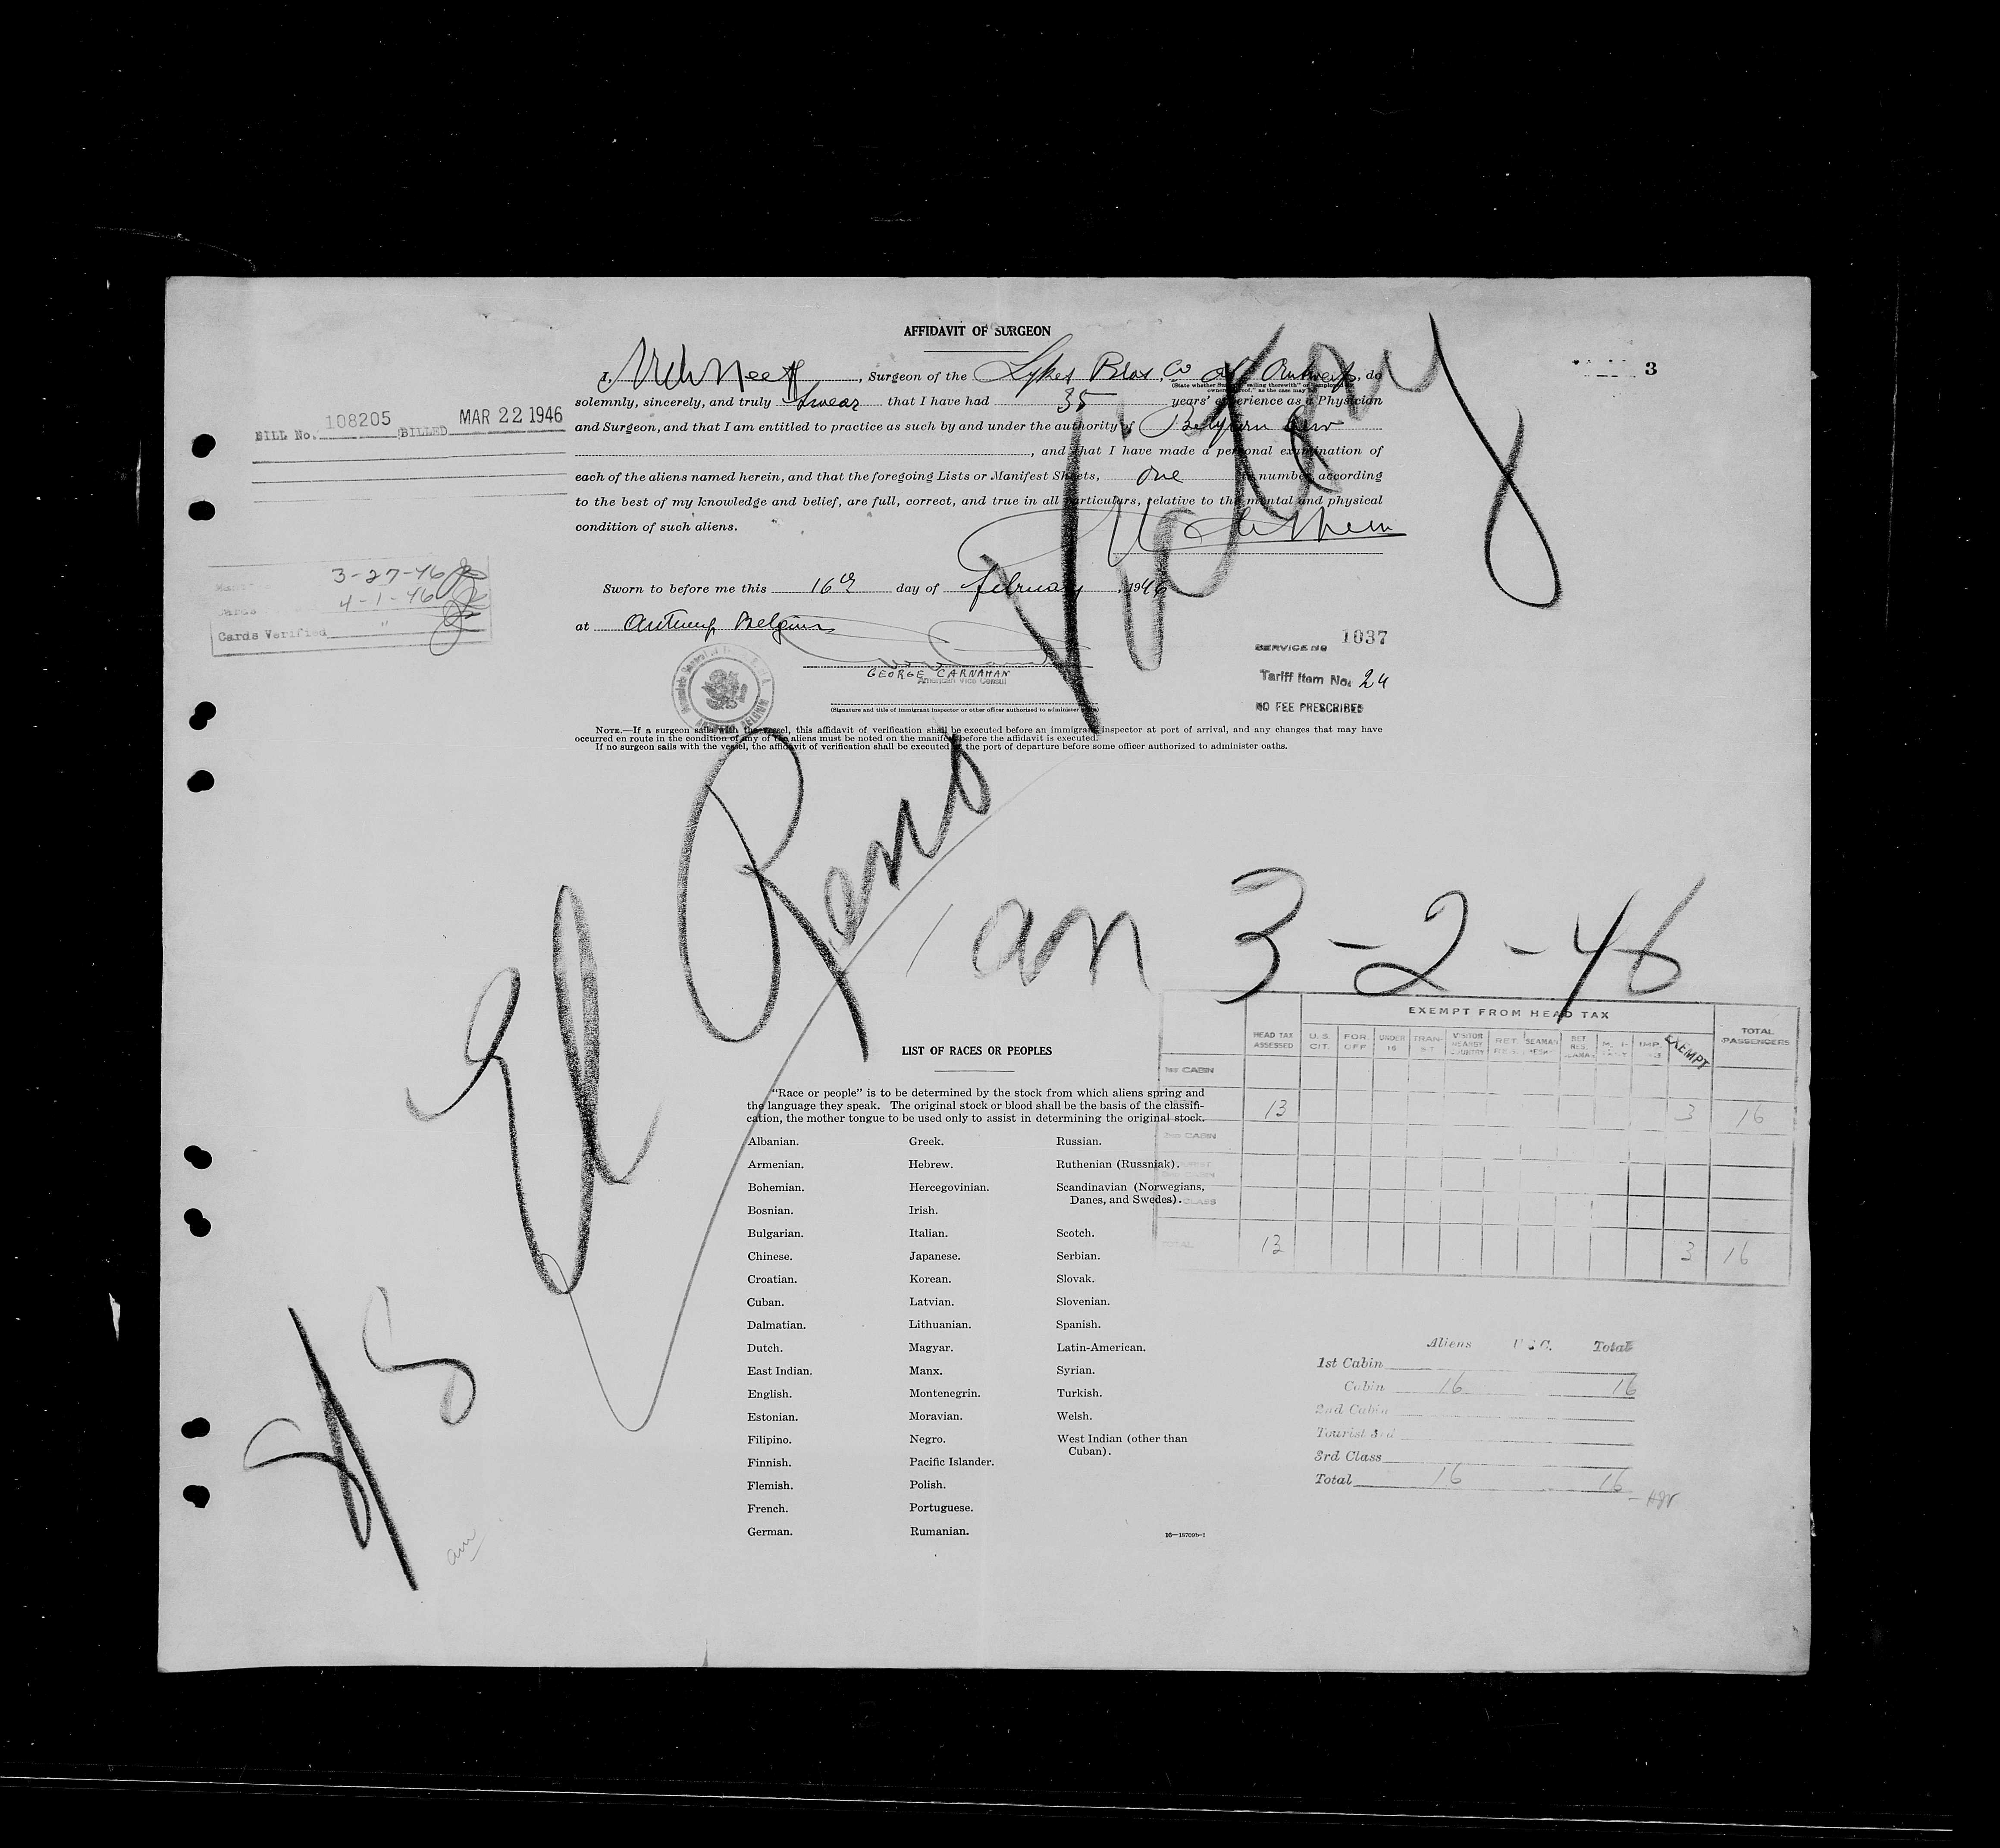 AFFIDAVIT OF SURGEON
3
I, , Surgeon of the Lykes Bros. Co of Antwerp, do
solemnly, sincerely, and truly swear that I have had 35 years' experience as a Physician
and Surgeon, and that I am entitled to practice as such by and under the authority of
, and that I have made a personal examination of
each of the aliens named herein, and that the foregoing Lists or Manifest Sheets, one number, according
to the best of my knowledge and belief, are full, correct, and true in all particulars, relative to the mental and physical
condition of such aliens.
BILL No. 108205 BILLED MAR 22 1946
3-27-46
4-1-46
Cards Verified "
Sworn to before me this 16th day of February, 1946
at Antwerp Belgium
GEORGE CARNAHAN
American Vice Consul
(Signature and title of immigrant inspector or other officer authorized to administer oaths)
SERVICE No 1037
Tariff Item No. 24
NO FEE PRESCRIBED
NOTE.—If a surgeon sails with the vessel, this affidavit of verification shall be executed before an immigrant inspector at port of arrival, and any changes that may have
occurred en route in the condition of any of the aliens must be noted on the manifest before the affidavit is executed.
If no surgeon sails with the vessel, the affidavit of verification shall be executed at the port of departure before some officer authorized to administer oaths.
S/S El Reno Victory
an 3-2-46
EXEMPT FROM HEAD TAX
HEAD TAX ASSESSED U.S. CIT. FOR. OFF. UNDER 16 TRANSIT VISITOR NEARBY COUNTRY RET. SEAMAN EXEMPT TOTAL PASSENGERS
1st CABIN
13 3 16
2nd CABIN
TOTAL 13 3 16
LIST OF RACES OR PEOPLES
"Race or people" is to be determined by the stock from which aliens spring and
the language they speak. The original stock or blood shall be the basis of the classifi-
cation, the mother tongue to be used only to assist in determining the original stock.
Albanian.
Armenian.
Bohemian.
Bosnian.
Bulgarian.
Chinese.
Croatian.
Cuban.
Dalmatian.
Dutch.
East Indian.
English.
Estonian.
Filipino.
Finnish.
Flemish.
French.
German.
Greek.
Hebrew.
Hercegovinian.
Irish.
Italian.
Japanese.
Korean.
Latvian.
Lithuanian.
Magyar.
Manx.
Montenegrin.
Moravian.
Negro.
Pacific Islander.
Polish.
Portuguese.
Rumanian.
Russian.
Ruthenian (Russniak).
Scandinavian (Norwegians,
Danes, and Swedes).
Scotch.
Serbian.
Slovak.
Slovenian.
Spanish.
Latin-American.
Syrian.
Turkish.
Welsh.
West Indian (other than
Cuban).
Aliens U.S.C. Total
1st Cabin
Cabin 16 16
2nd Cabin
Tourist 3rd
3rd Class
Total 16 16